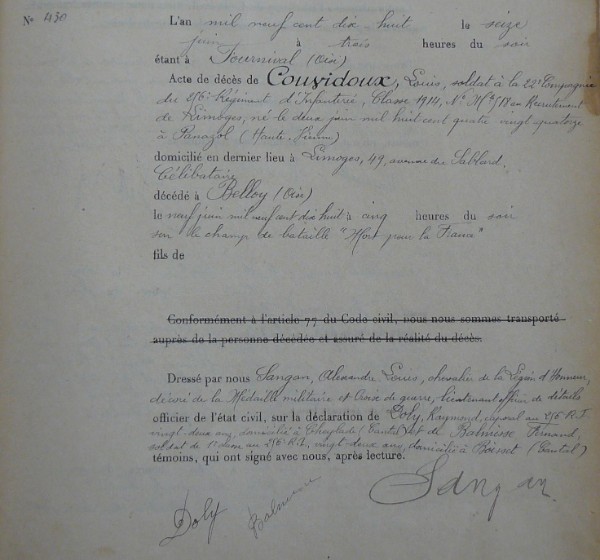 N° 430
L'an mil neuf cent dix-huit le seize
juin à trois heures du soir
étant à Tournival (Oise)
Acte de décès de Couvidoux, Louis, soldat à la 22e Compagnie
du 216e Régiment d'Infanterie, Classe 1914, N° au Recrutement
de Limoges, né le deux juin mil huit cent quatre vingt quatorze
à Panazol (Haute-Vienne)
domicilié en dernier lieu à Limoges, 49, avenue du Sablard.
Célibataire
décédé à Belloy (Oise)
le neuf juin mil neuf cent dix huit à cinq heures du soir
sur le champ de bataille "Mort pour la France"
fils de
Conformément à l'article 77 du Code civil, nous nous sommes transporté
auprès de la personne décédée et assuré de la réalité du décès.
Dressé par nous Sangan, Alexandre Louis, chevalier de la Légion d'Honneur,
décoré de la Médaille militaire et Croix de guerre, lieutenant officier de détails
officier de l'état civil, sur la déclaration de Doly, Raymond, caporal au 216 R.I.
vingt deux ans, domicilié à (Cantal) et de Balmisse Fernand,
soldat de 1e classe au 216 R.I., vingt deux ans, domicilié à Boisset (Cantal)
témoins, qui ont signé avec nous, après lecture.
Sangan
Doly Balmisse